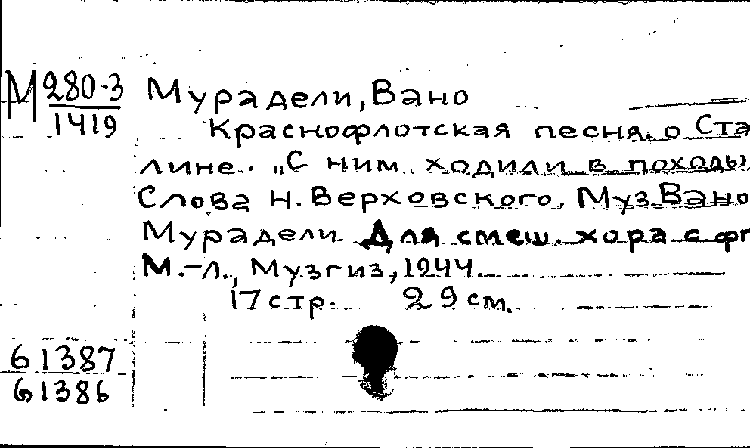 М 280-3
1419
Мурадели, Вано
Краснофлотская песня о Ста
лине. „С ним ходили в походы
Слова Н. Верховского, Муз. Вано
Мурадели Для смеш. хора с фп
М.-Л., Музгиз, 1944
17 стр. 29 см.
61387
61386